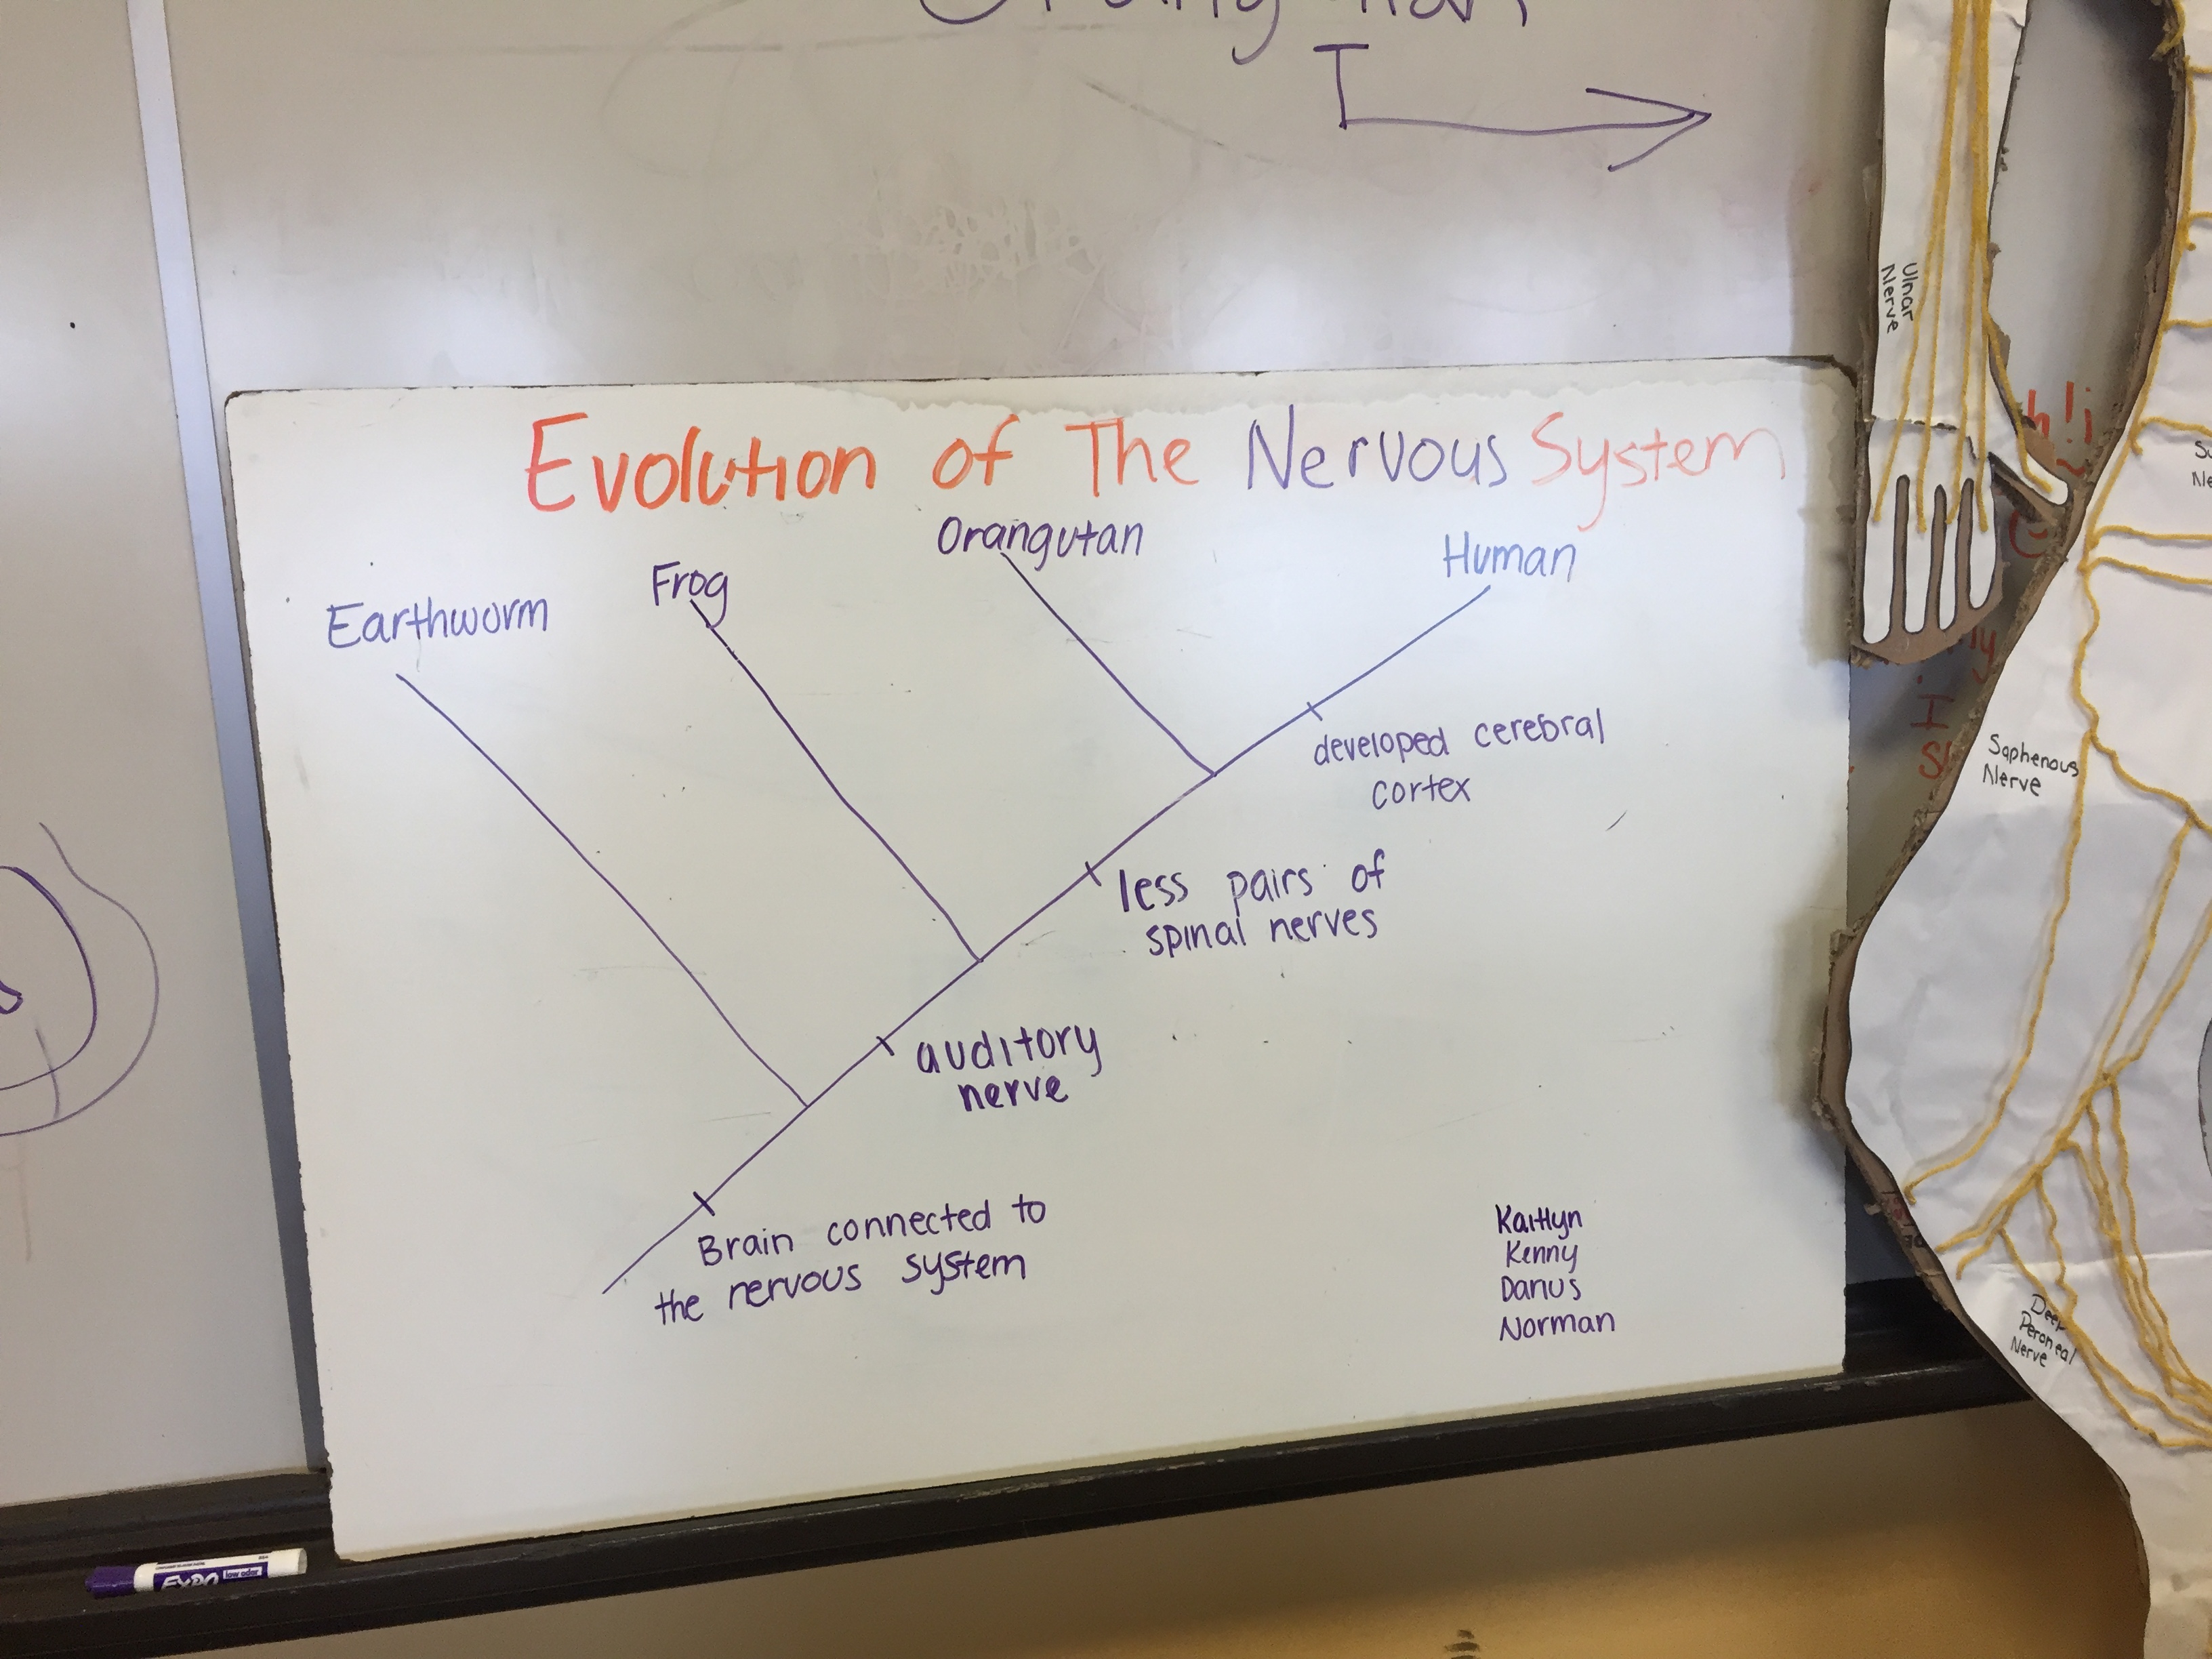 Evolution of The Nervous System
Earthworm
Frog
Orangutan
Human
developed cerebral
cortex
less pairs of
spinal nerves
auditory
nerve
Brain connected to
the nervous system
Kaitlyn
Kenny
Darius
Norman
Ulnar
Nerve
Saphenous
Nerve
Deep
Peroneal
Nerve
EXPO
low odor